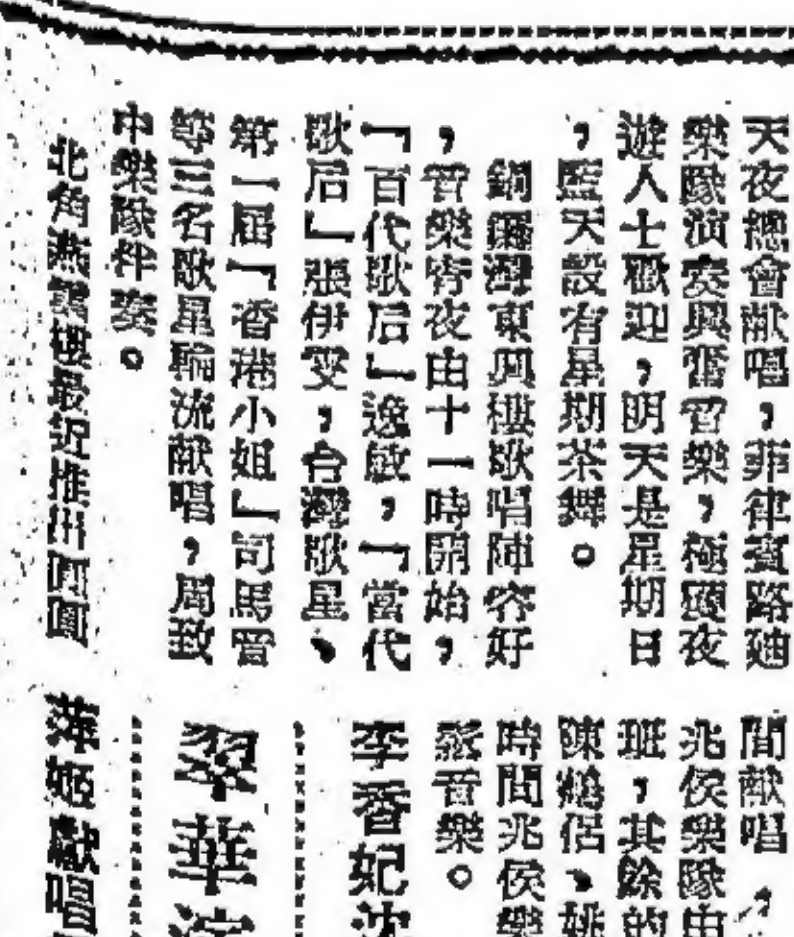 天夜總會獻唱，菲律賓路迪
樂隊演奏興奮音樂，極願夜
遊人士歡迎，明天是星期日
，藍天設有星期茶舞。
銅鑼灣東興樓歌唱陣容好
，音樂宵夜由十一時開始，
「百代歌后」逸敏，「當代
歌后」張伊雯，台灣歌星、
第一屆「香港小姐」司馬音
等三名歌星輪流獻唱，周致
中樂隊伴奏。
北角燕窩樓最近推出
間獻唱，
兆侯樂隊由
班，其餘的
陳鶴侶、姚
時間兆侯樂
音樂。
李香妃沈
翠華
萍姬獻唱